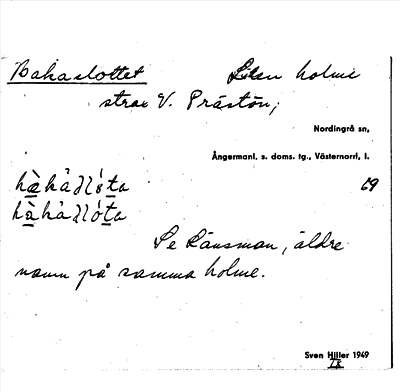 Bakaslottet Liten holme
strax V. Prästön,
Nordingrå sn,
Ångermanl. s. doms. tg., Västernorrl. l.
69
Se Länsman, äldre
namn på samma holme.
Sven Hiller 1949